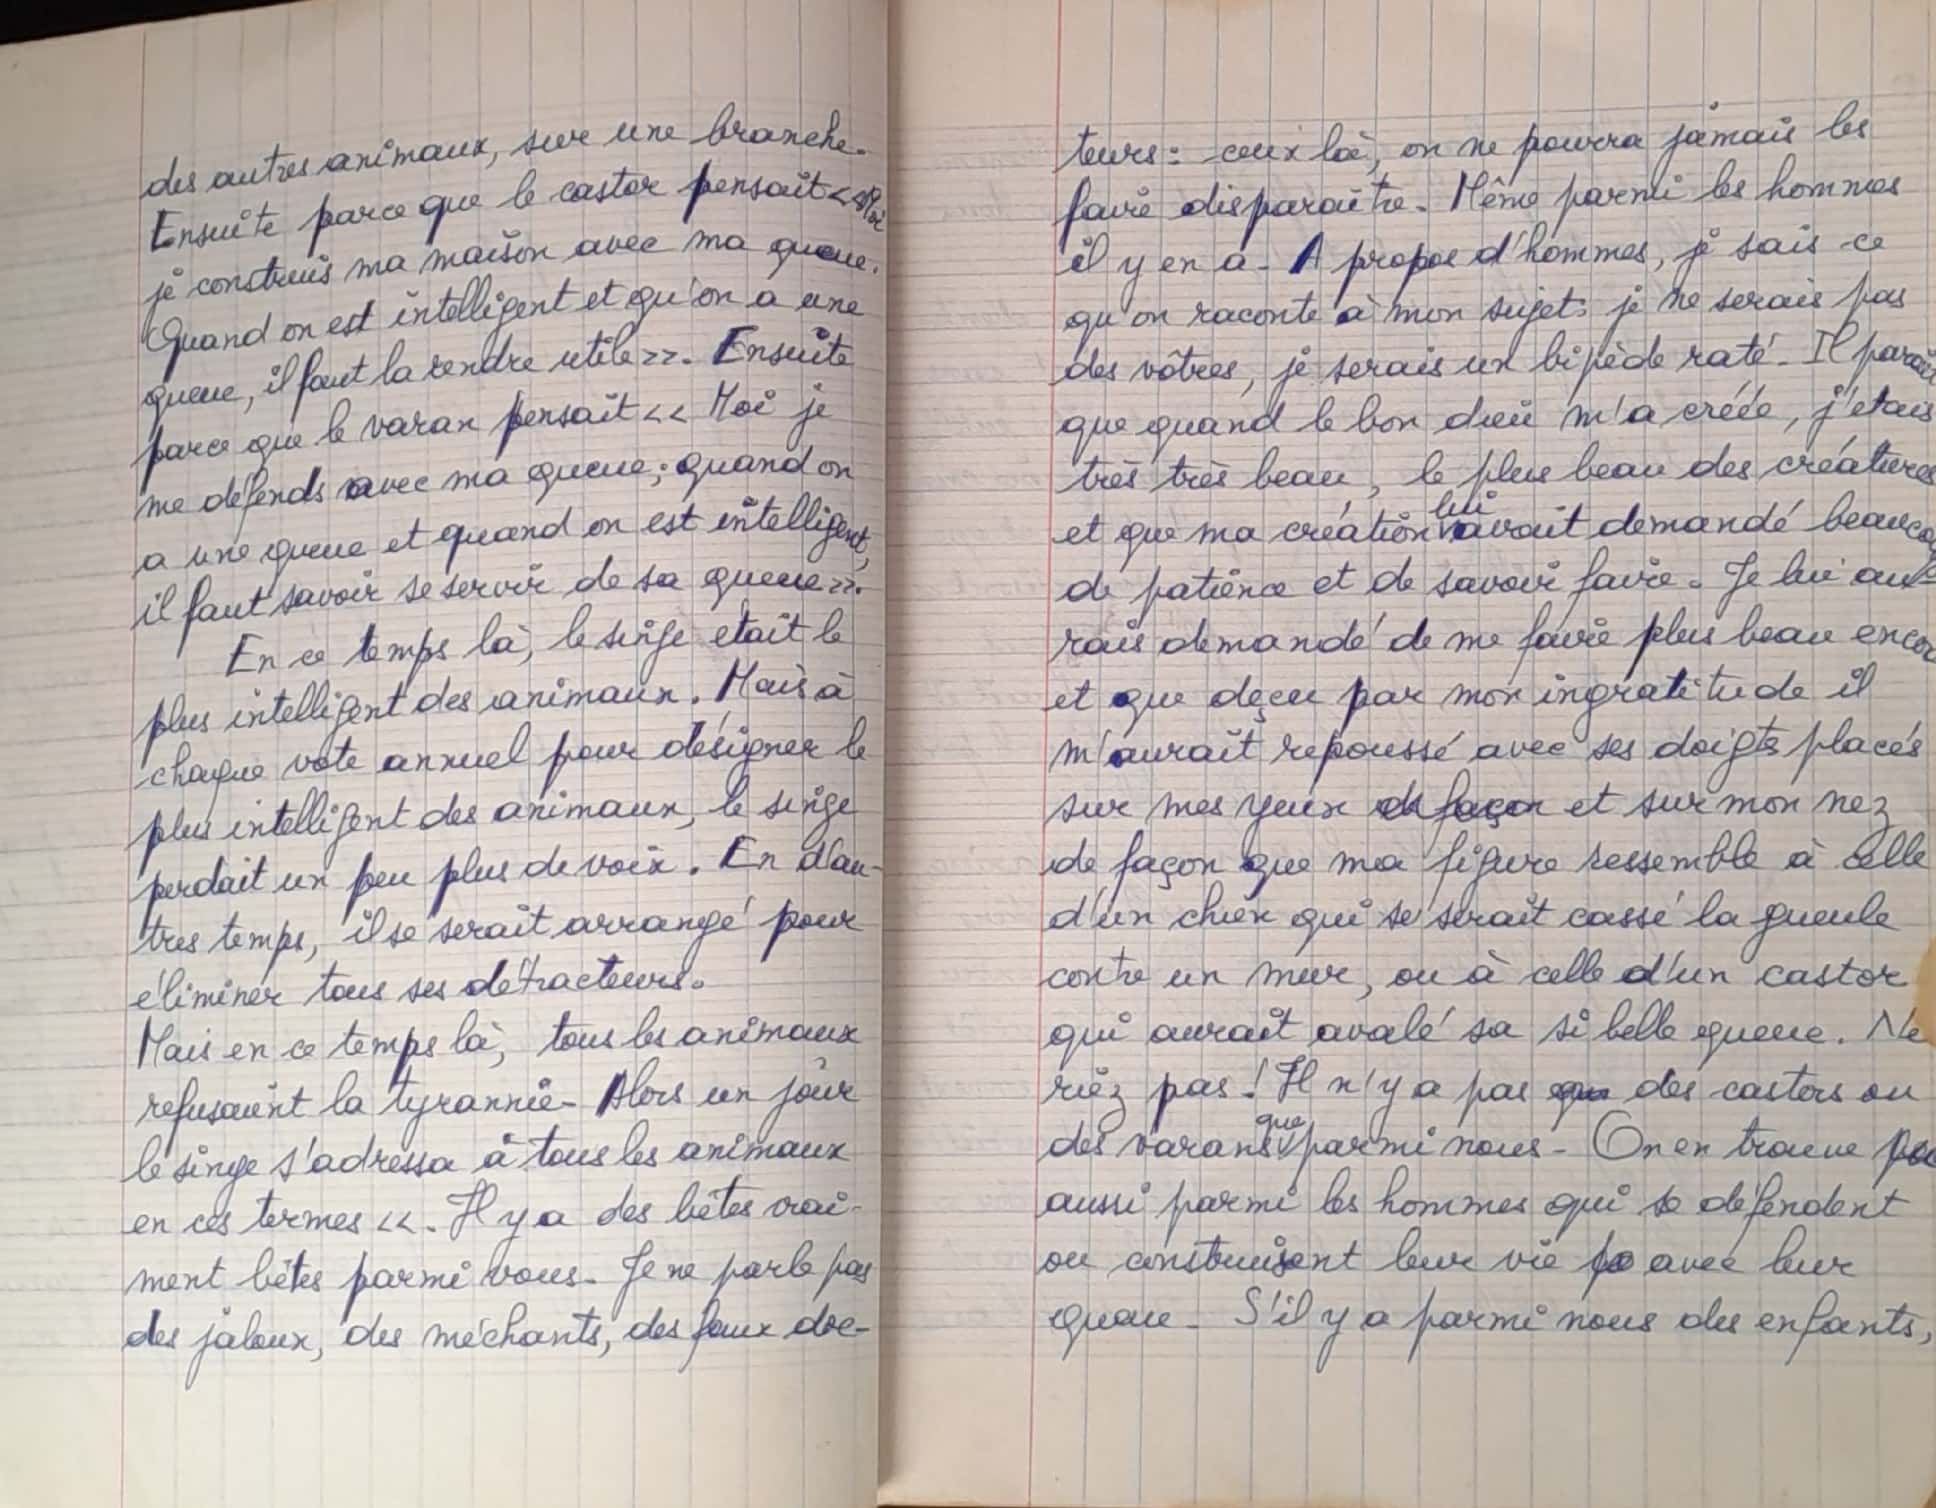 des autres animaux, sur une branche.
Ensuite parce que le castor pensait << Moi
je construis ma maison avec ma queue.
Quand on est intelligent et qu'on a une
queue, il faut la rendre utile >>. Ensuite
parce que le varan pensait << Moi je
me défends avec ma queue; quand on
a une queue et quand on est intelligent,
il faut savoir se servir de sa queue >>.
En ce temps là, le singe était le
plus intelligent des animaux. Mais à
chaque vote annuel pour désigner le
plus intelligent des animaux, le singe
perdait un peu plus de voix. En d'au-
tres temps, il se serait arrangé pour
éliminer tous ses détracteurs.
Mais en ce temps là, tous les animaux
refusaient la tyrannie. Alors un jour
le singe s'adressa à tous les animaux
en ces termes <<. Il y a des bêtes vrai-
ment bêtes parmi vous. Je ne parle pas
des jaloux, des méchants, des faux doc-
teurs: ceux là, on ne pourra jamais les
faire disparaître. Même parmi les hommes
il y en a. A propos d'hommes, je sais ce
qu'on raconte à mon sujet: je ne serais pas
des vôtres, je serais un bipède raté. Il parait
que quand le bon dieu m'a créée, j'étais
très très beau, le plus beau des créatures
et que ma création lui avait demandé beaucoup
de patience et de savoir faire. Je lui au-
rais demandé de me faire plus beau encor
et que deçu par mon ingratitude il
m'aurait repoussé avec ses doigts placés
sur mes yeux de façon et sur mon nez
de façon que ma figure ressemble à celle
d'un chien qui se serait cassé la gueule
contre un mur, ou à celle d'un castor
qui aurait avalé sa si belle queue. Ne
riez pas! Il n'y a pas que des castors ou
des varans que parmi nous. On en trouve
aussi parmi les hommes qui se défendent
ou construisent leur vie avec leur
queue. S'il y a parmi nous des enfants,